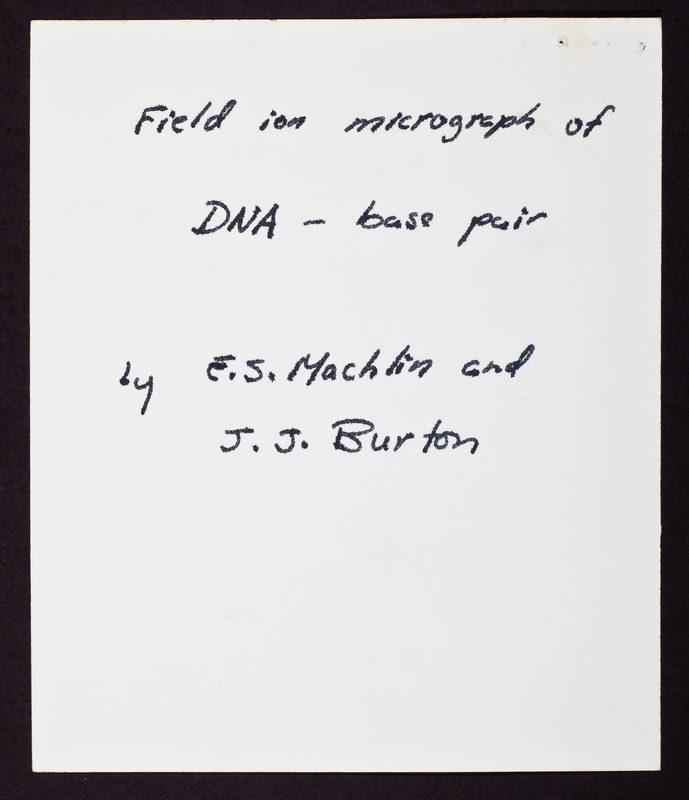 Field ion micrograph of
DNA - base pair
by E.S. Machlin and
J. J. Burton